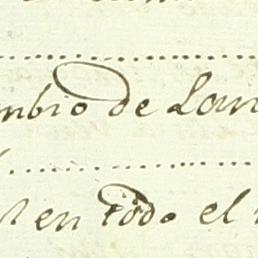 mbio de Lan
en todo el